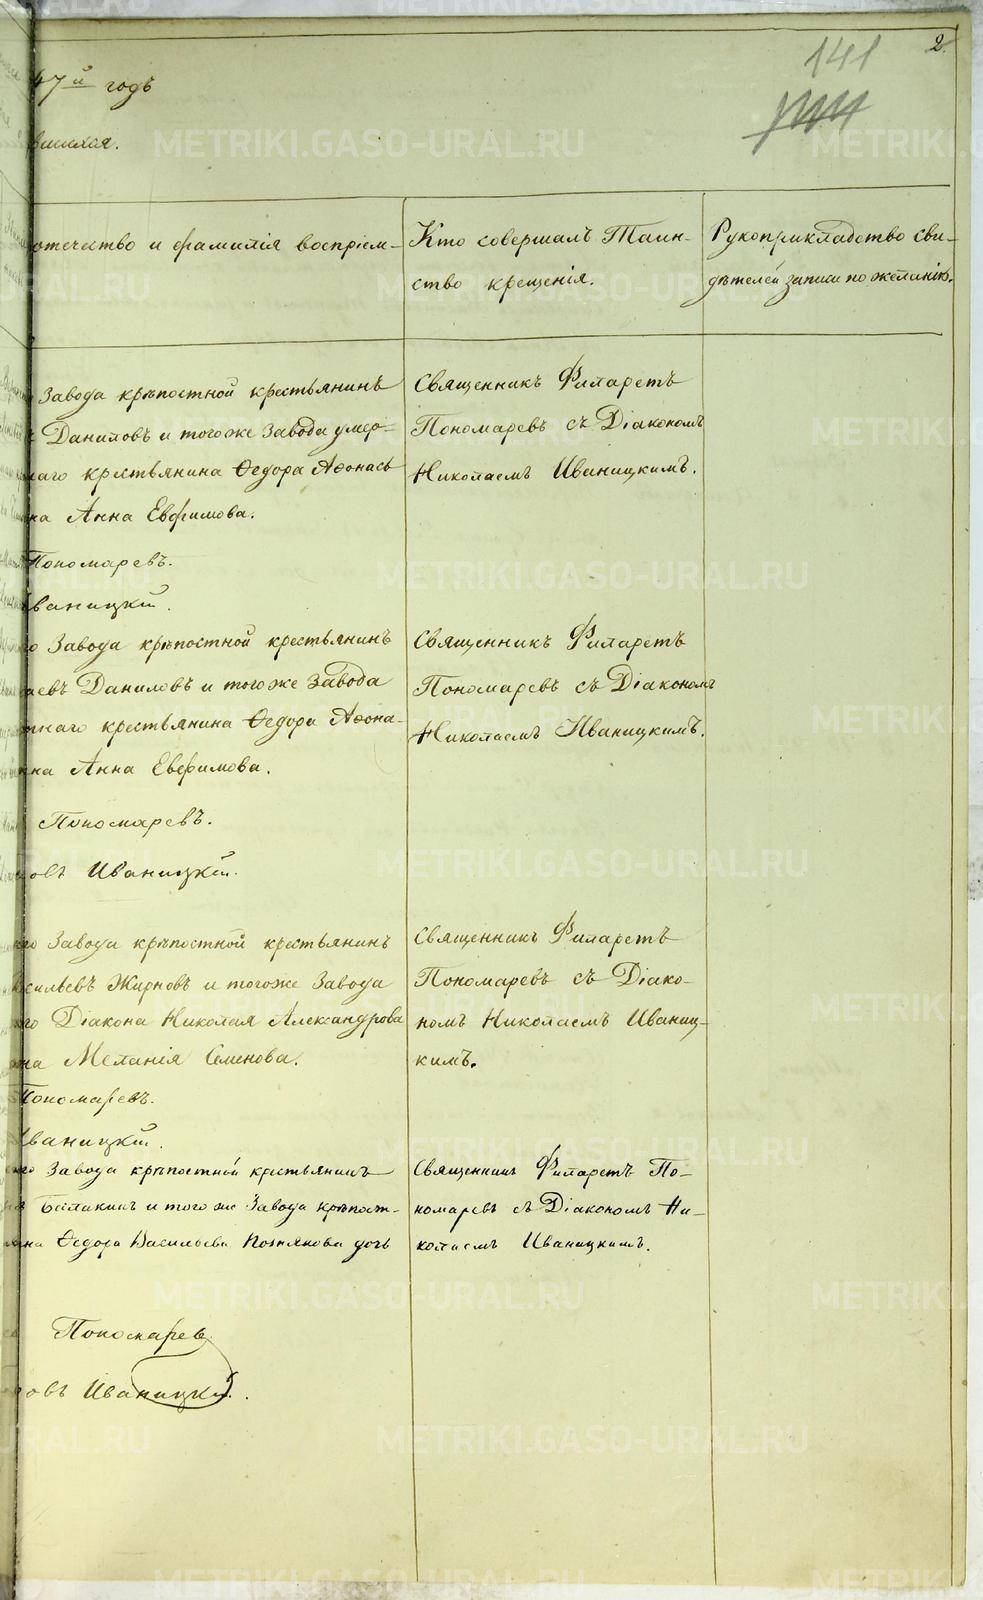 2.
141
47й годъ
отечество и фамилія воспріем-
Кто совершалъ Таин-
ство крещенія.
Рукоприкладство сви-
дѣтелей записи по желанію.
Завода крѣпостной крестьянинъ
Даниловъ и тогоже Завода умер-
наго крестьянина Ѳедора Аѳонась
на Анна Евфимова.
Пономаревъ.
Иваницкій.
Священникъ Филаретъ
Пономаревъ съ Діакономъ
Николаемъ Иваницкимъ.
го Завода крѣпостной крестьянинъ
аевъ Даниловъ и тогоже Завода
наго крестьянина Ѳедора Аѳона-
на Анна Евфимова.
Пономаревъ.
овъ Иваницкій.
Священникъ Филаретъ
Пономаревъ съ Діакономъ
Николаемъ Иваницкимъ.
го Завода крѣпостной крестьянинъ
сильевъ Жирновъ и тогоже Завода
го Діакона Николая Александрова
на Меланія Семенова.
Пономаревъ.
Иваницкій.
Священникъ Филаретъ
Пономаревъ съ Діако-
номъ Николаемъ Иваниц-
кимъ.
го Завода крѣпостной крестьянинъ
Балакинъ и тогоже Завода крѣпост-
на Ѳедора Васильева дочь
Пономаревъ
овъ Иваницкій.
Священникъ Филаретъ По-
номаревъ съ Діакономъ Ни-
колаемъ Иваницкимъ.
METRIKI.GASO-URAL.RU